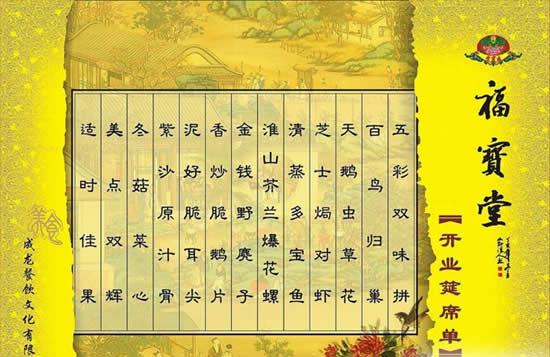 福寶堂
【开业筵席单】
五彩双味拼
百鸟归巢
天鹅虫草花
芝士焗对虾
清蒸多宝鱼
淮山芥兰爆花螺
金钱野麂子
香炒脆鹅片
泥好脆耳尖
紫沙原汁骨
冬菇菜心
美点双辉
适时佳果
成龙餐饮文化有限